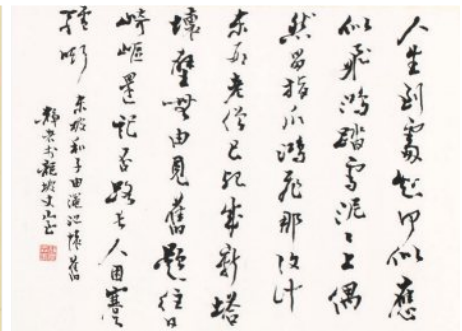 人生到處知何似應
似飛鴻踏雪泥〻上偶
然留指爪鴻飛那復計
東西老僧已死成新塔
壞壁無由見舊題往日
崎嶇還記否路長人困蹇
驢嘶
東坡和子由澠池懷舊
靜農於龍坡丈